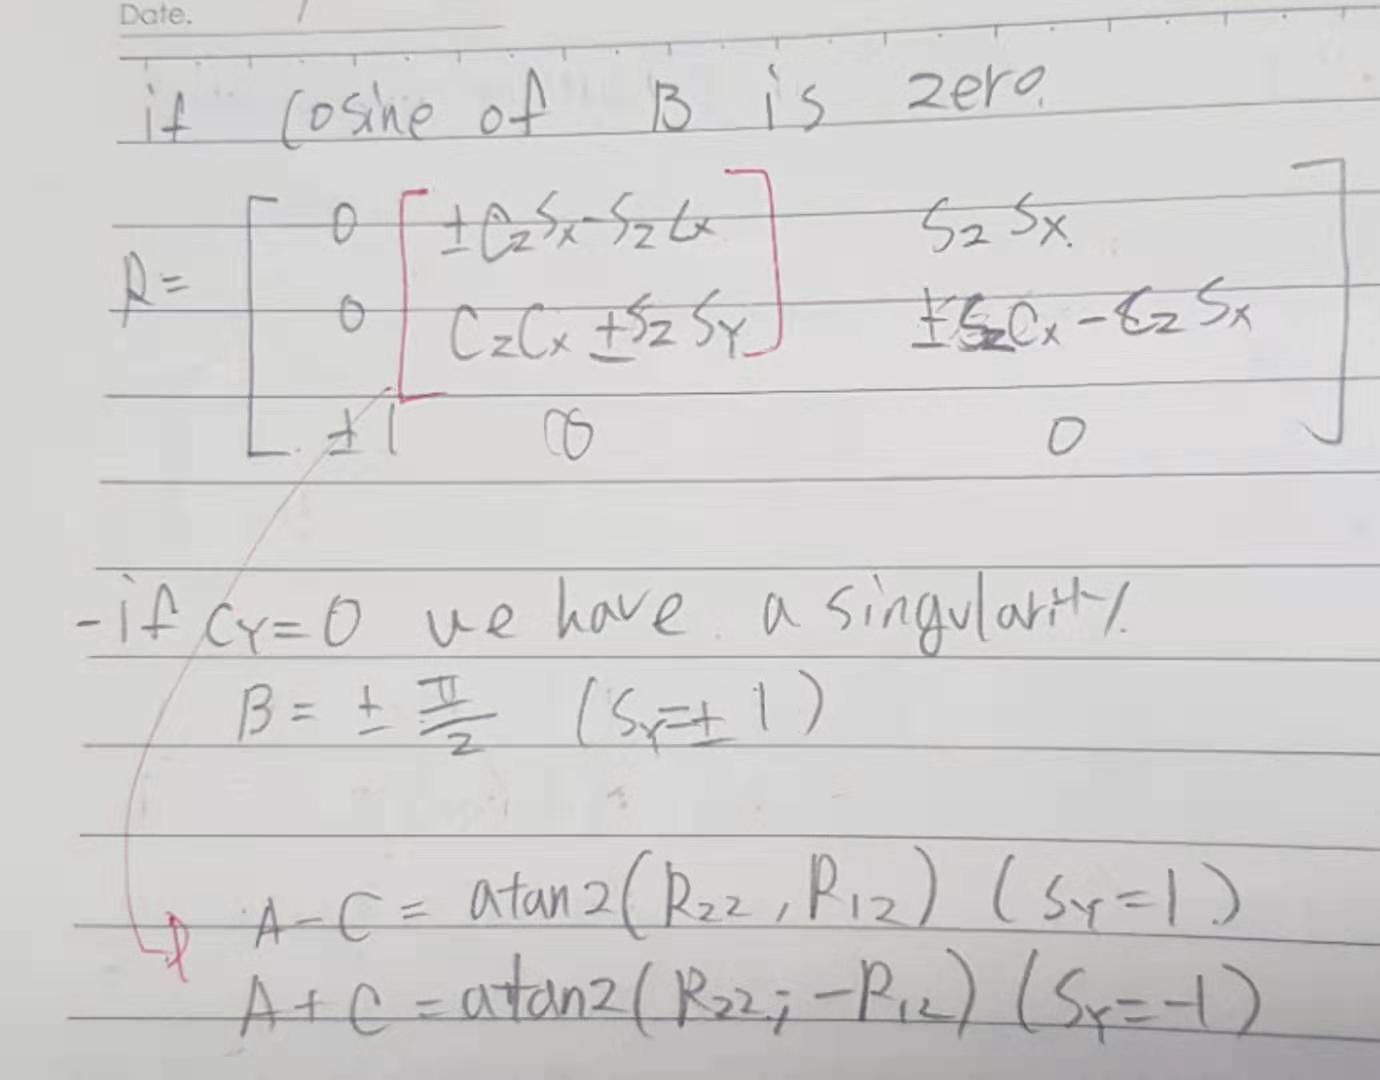 Date.
if Cosine of B is zero.
R = [ 0 [ ±CzSx-SzCx ] SzSx.
0 CzCx ±SzSY ±SzCx - CzSx
±1 0 0 ]
-if CY=0 we have a singularity.
B = ± π/2 (SY=±1)
A-C = atan2(R22, R12) (SY=1)
A+C = atan2(R22; -R12) (SY=-1)